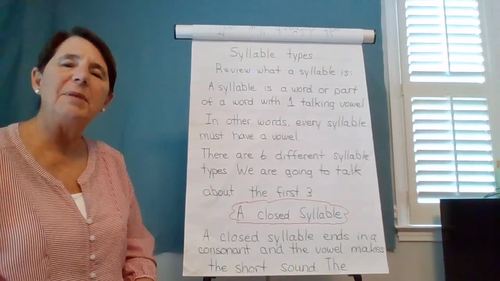 Syllable types
Review what a syllable is:
A syllable is a word or part
of a word with 1 talking vowel
In other words, every syllable
must have a vowel.
There are 6 different syllable
types We are going to talk
about the first 3
A closed Syllable
A closed syllable ends in a
consonant and the vowel makes
the short sound. The